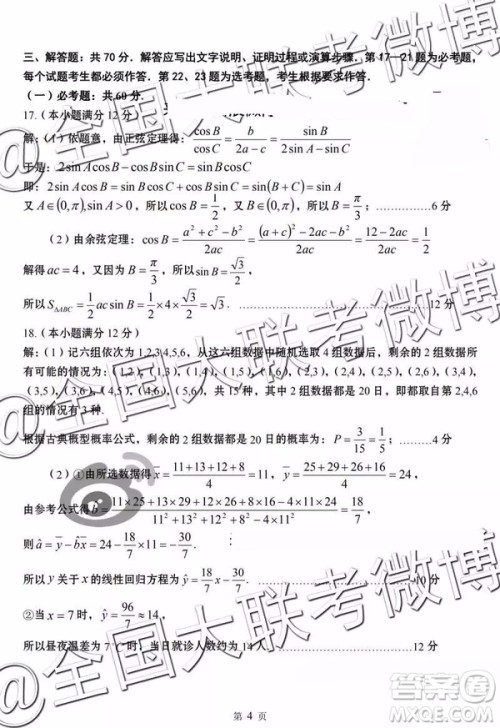 三、解答题：共 70 分．解答应写出文字说明、证明过程或演算步骤．第 17—21 题为必考题，
每个试题考生都必须作答．第 22、23 题为选考题，考生根据要求作答．
（一）必考题：共 60 分．
17.（本小题满分 12 分）
解：（1）依题意，由正弦定理得：cosB/cosC = b/(2a−c) = sinB/(2sinA−sinC)
于是：2sinAcosB−cosBsinC=sinBcosC
即：2sinAcosB=sinBcosC+cosBsinC=sin(B+C)=sinA
又 A∈(0,π),sinA>0，所以 cosB=1/2，又 B∈(0,π)，所以 B=π/3；…………6 分
（2）由余弦定理：cosB=(a²+c²−b²)/2ac=((a+c)²−2ac−b²)/2ac=(12−2ac)/2ac=1/2
解得 ac=4，又因为 B=π/3，所以 sinB=√3/2，
所以 S△ABC=1/2 acsinB=1/2×4×√3/2=√3．…………12 分
18.（本小题满分 12 分）
解：（1）记六组依次为 1,2,3,4,5,6，从这六组数据中随机选取 4 组数据后，剩余的 2 组数据所
有可能的情况为：(1,2)，(1,3)，(1,4)，(1,5)，(1,6)，(2,3)，(2,4)，(2,5)，(2,6)，(3,4)
，(3,5)，(3,6)，(4,5)，(4,6)，(5,6)，共 15 种，其中 2 组数据即都取自第 2,4,6
组的情况有 3 种．
根据古典概型概率公式，剩余的 2 组数据都是 20 日的概率为：P=3/15=1/5；…………4 分
（2）①由所选数据得 x̄=(11+13+12+8)/4=11，ȳ=(25+29+26+16)/4=24，
由参考公式得 b̂=(11×25+13×29+12×26+8×16−4×11×24)/(11²+13²+12²+8²−4×11²)=18/7，
则 â=ȳ−b̂x̄=24−18/7×11=−30/7．
所以 y 关于 x 的线性回归方程为 ŷ=18/7 x−30/7．…………10 分
②当 x=7 时，ŷ=96/7≈14，
所以昼夜温差为 7℃时，当日就诊人数约为 14 人．…………12 分
第 4 页
@全国大联考微博
@全国大联考微博
答案圈
MXQE.COM